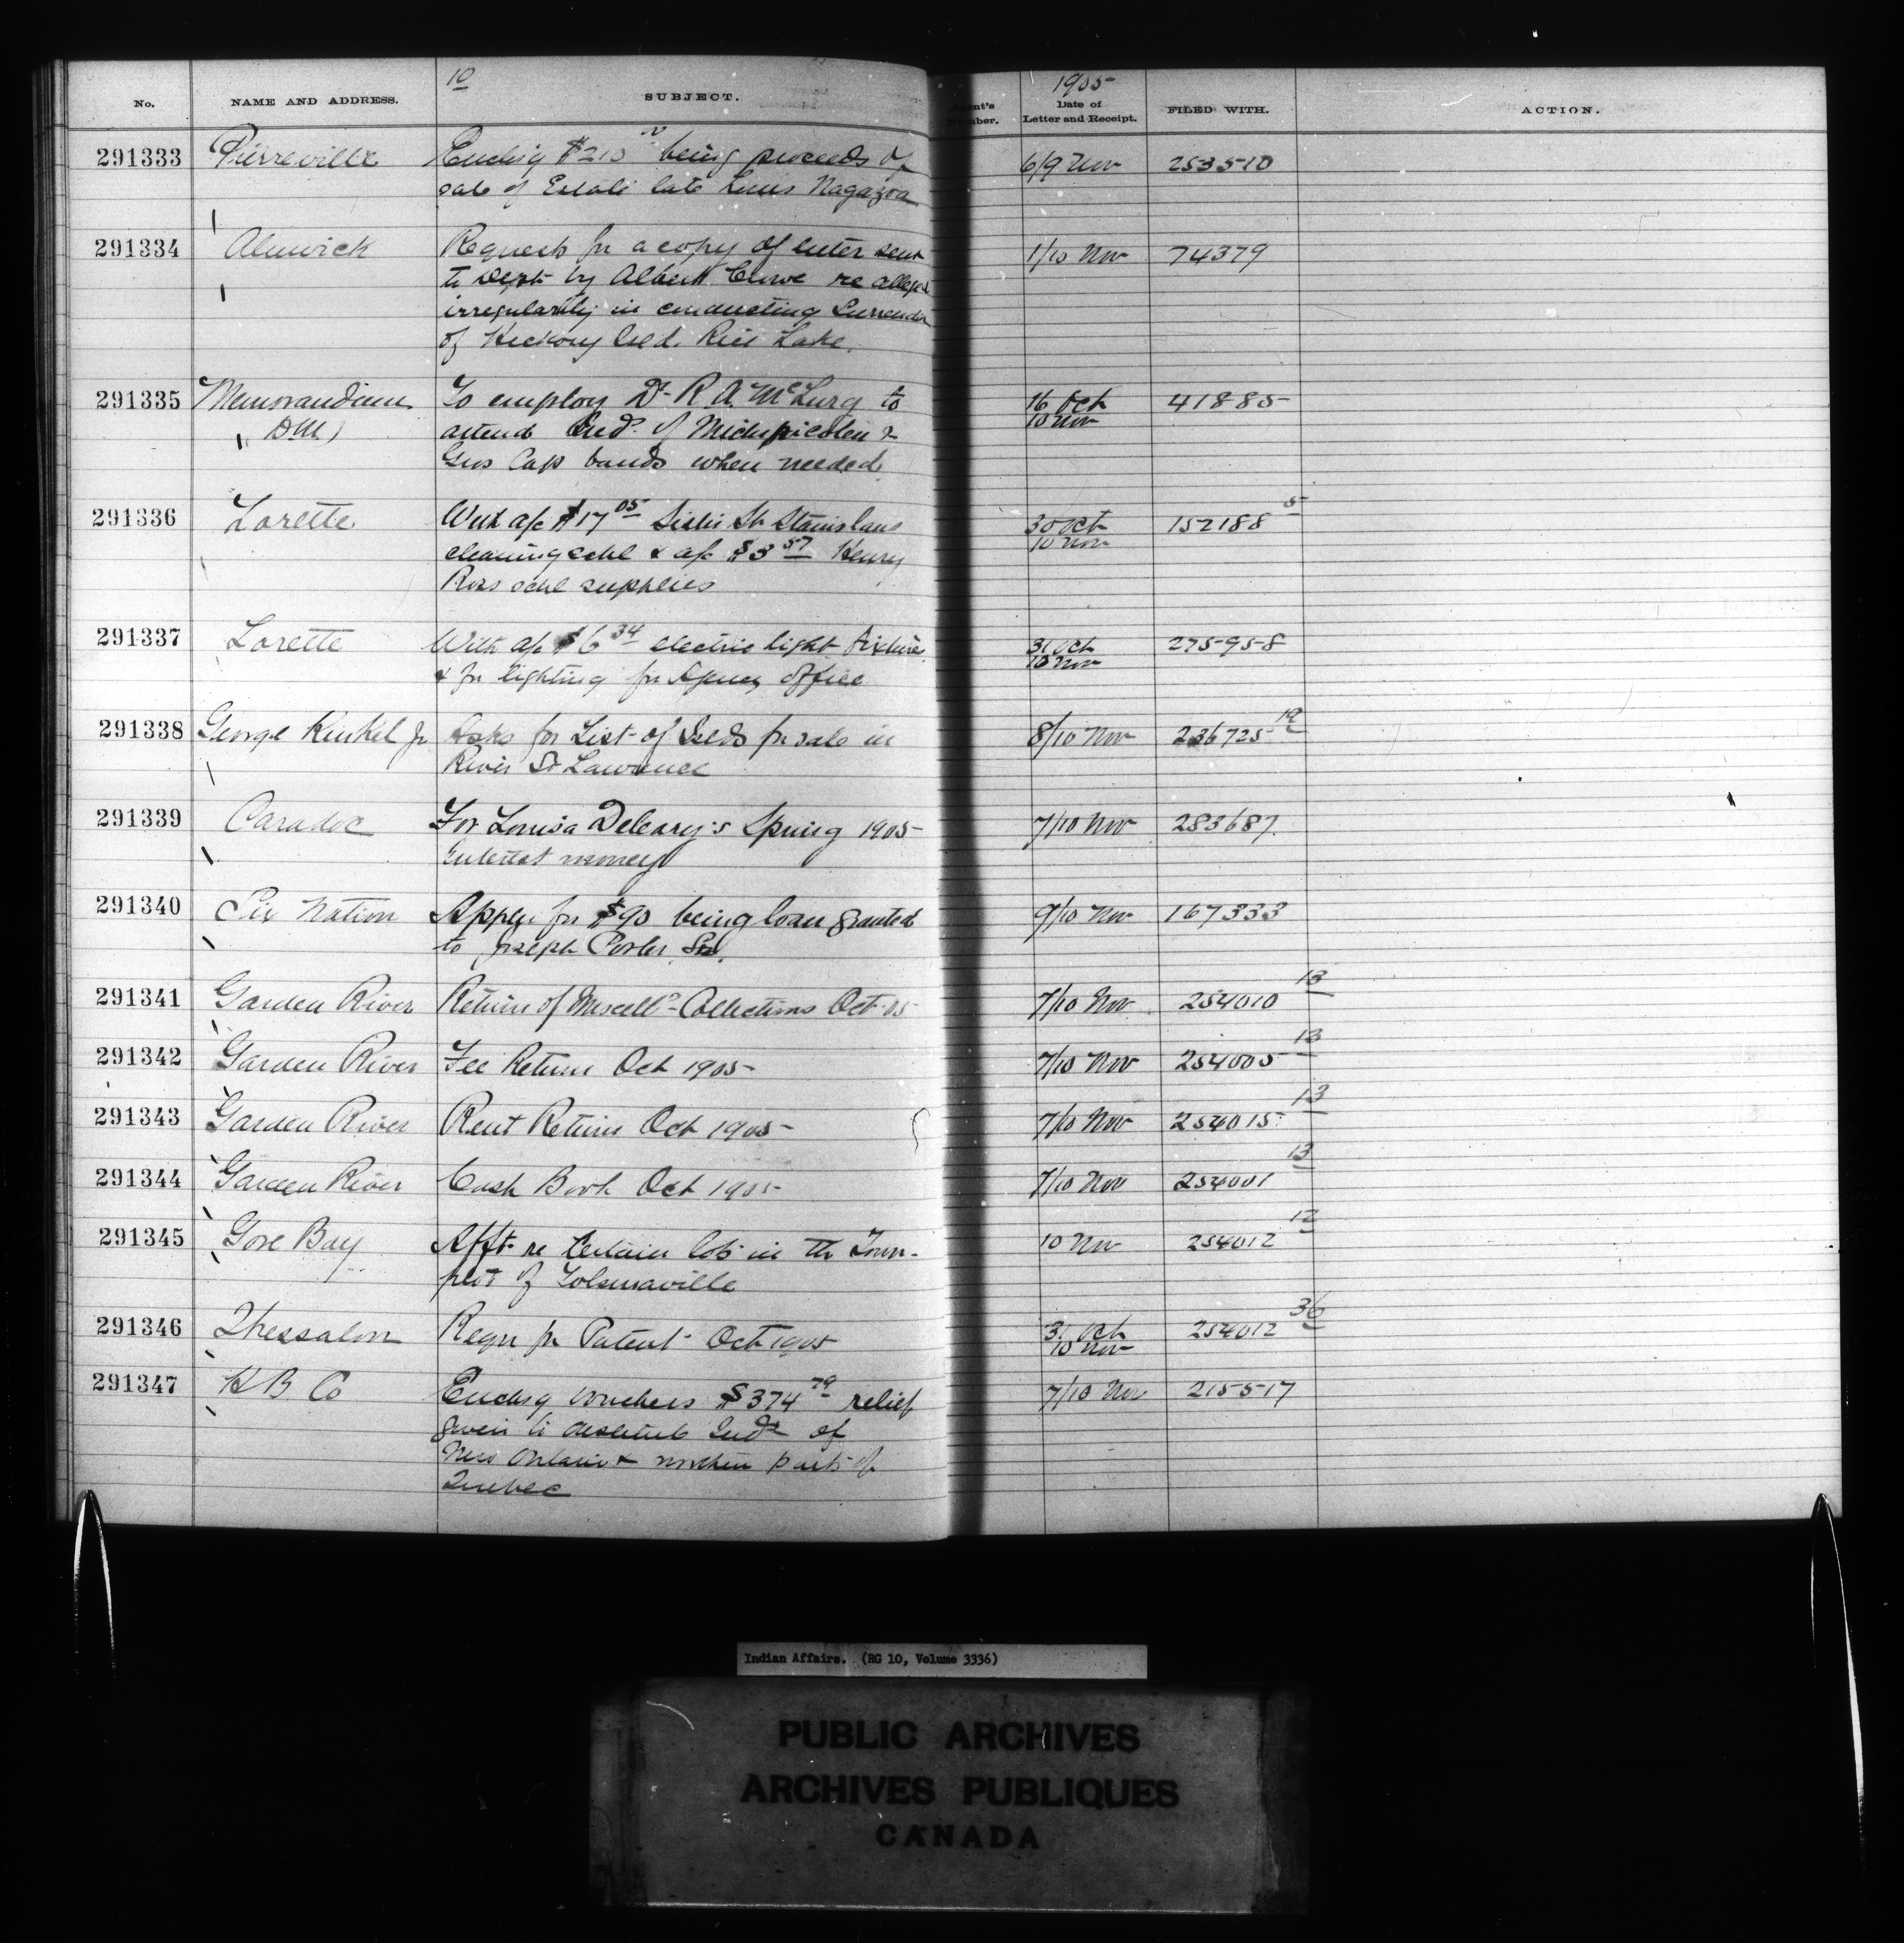 10
1905
No. NAME AND ADDRESS. SUBJECT. Agent's Number. Date of Letter and Receipt. FILED WITH. ACTION.
291333 Pierreville Enclsg $210 being proceeds of 6/9 Nov 253510
sale of Estate late Louis Nagazoa
291334 Alnwick Requests for a copy of letter sent 1/10 Nov 74379
to Dept by Albert Crowe re alleged
irregularity in conducting Surrender
of Hickory Isld. Rice Lake.
291335 Memorandum To employ Dr R. A. McLurg to 16 Oct 41885
D.M. attend Inds. of Michipicoten & 10 Nov
Gros Cap bands when needed
291336 Lorette With a/c $17 05 Sister St. Stanislaus 30 Oct 152188 5
cleaning schl & a/c $3 57 Henry 10 Nov
Ross schl supplies
291337 Lorette With a/c $6 34 electric light fixtures 31 Oct 275958
& for lighting for Agency Office 10 Nov
291338 George Kunkel Jr Asks for List of Islds for sale in 8/10 Nov 236725 19
River St Lawrence
291339 Caradoc For Louisa Deleary's Spring 1905 7/10 Nov 283687
Interest money
291340 Six Nation Appln for $90 being loan granted 9/10 Nov 167333
to Joseph Porter Sr.
291341 Garden River Return of Miscells Collections Oct 05 7/10 Nov 254010 13
291342 Garden River Fee Return Oct 1905 7/10 Nov 254005 13
291343 Garden River Rent Return Oct 1905 7/10 Nov 254015 13
291344 Garden River Cash Book Oct 1905 7/10 Nov 254001 13
291345 Gore Bay Afft re Certain lots in the Town- 10 Nov 254012 12
plot of Tolsmaville
291346 Thessalon Requ for Patent Oct 1905 31 Oct 254012 36
10 Nov
291347 H B Co Enclsg vouchers $374 79 relief 7/10 Nov 215517
given to destitute Inds of
New Ontario & northern parts of
Quebec
Indian Affairs. (RG 10, Volume 3336)
PUBLIC ARCHIVES
ARCHIVES PUBLIQUES
CANADA